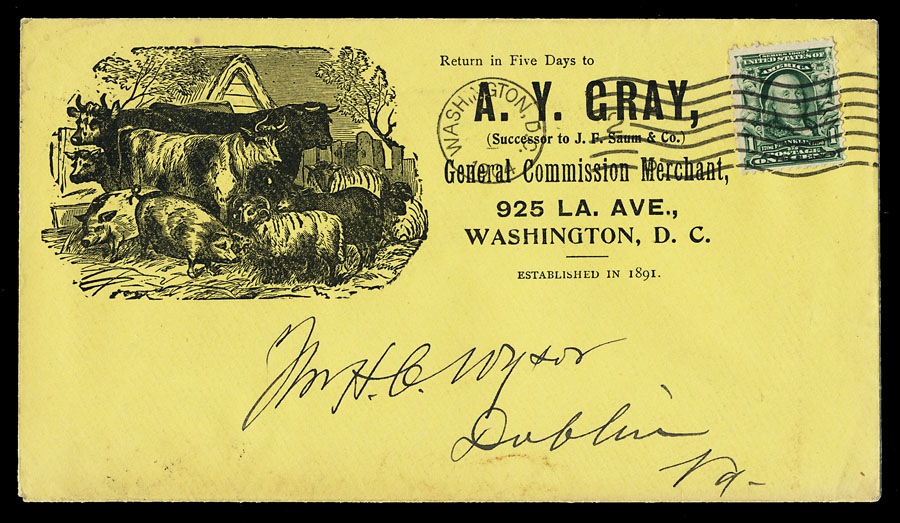 Return in Five Days to
A. Y. GRAY,
(Successor to J. F. Saum & Co.)
General Commission Merchant,
925 LA. AVE.,
WASHINGTON, D. C.
ESTABLISHED IN 1891.
WASHINGTON, D.
SERIES 1902
UNITED STATES OF
AMERICA
1 FRANKLIN 1
POSTAGE
ONE CENT
H. C. Wysor
Dublin
Va-